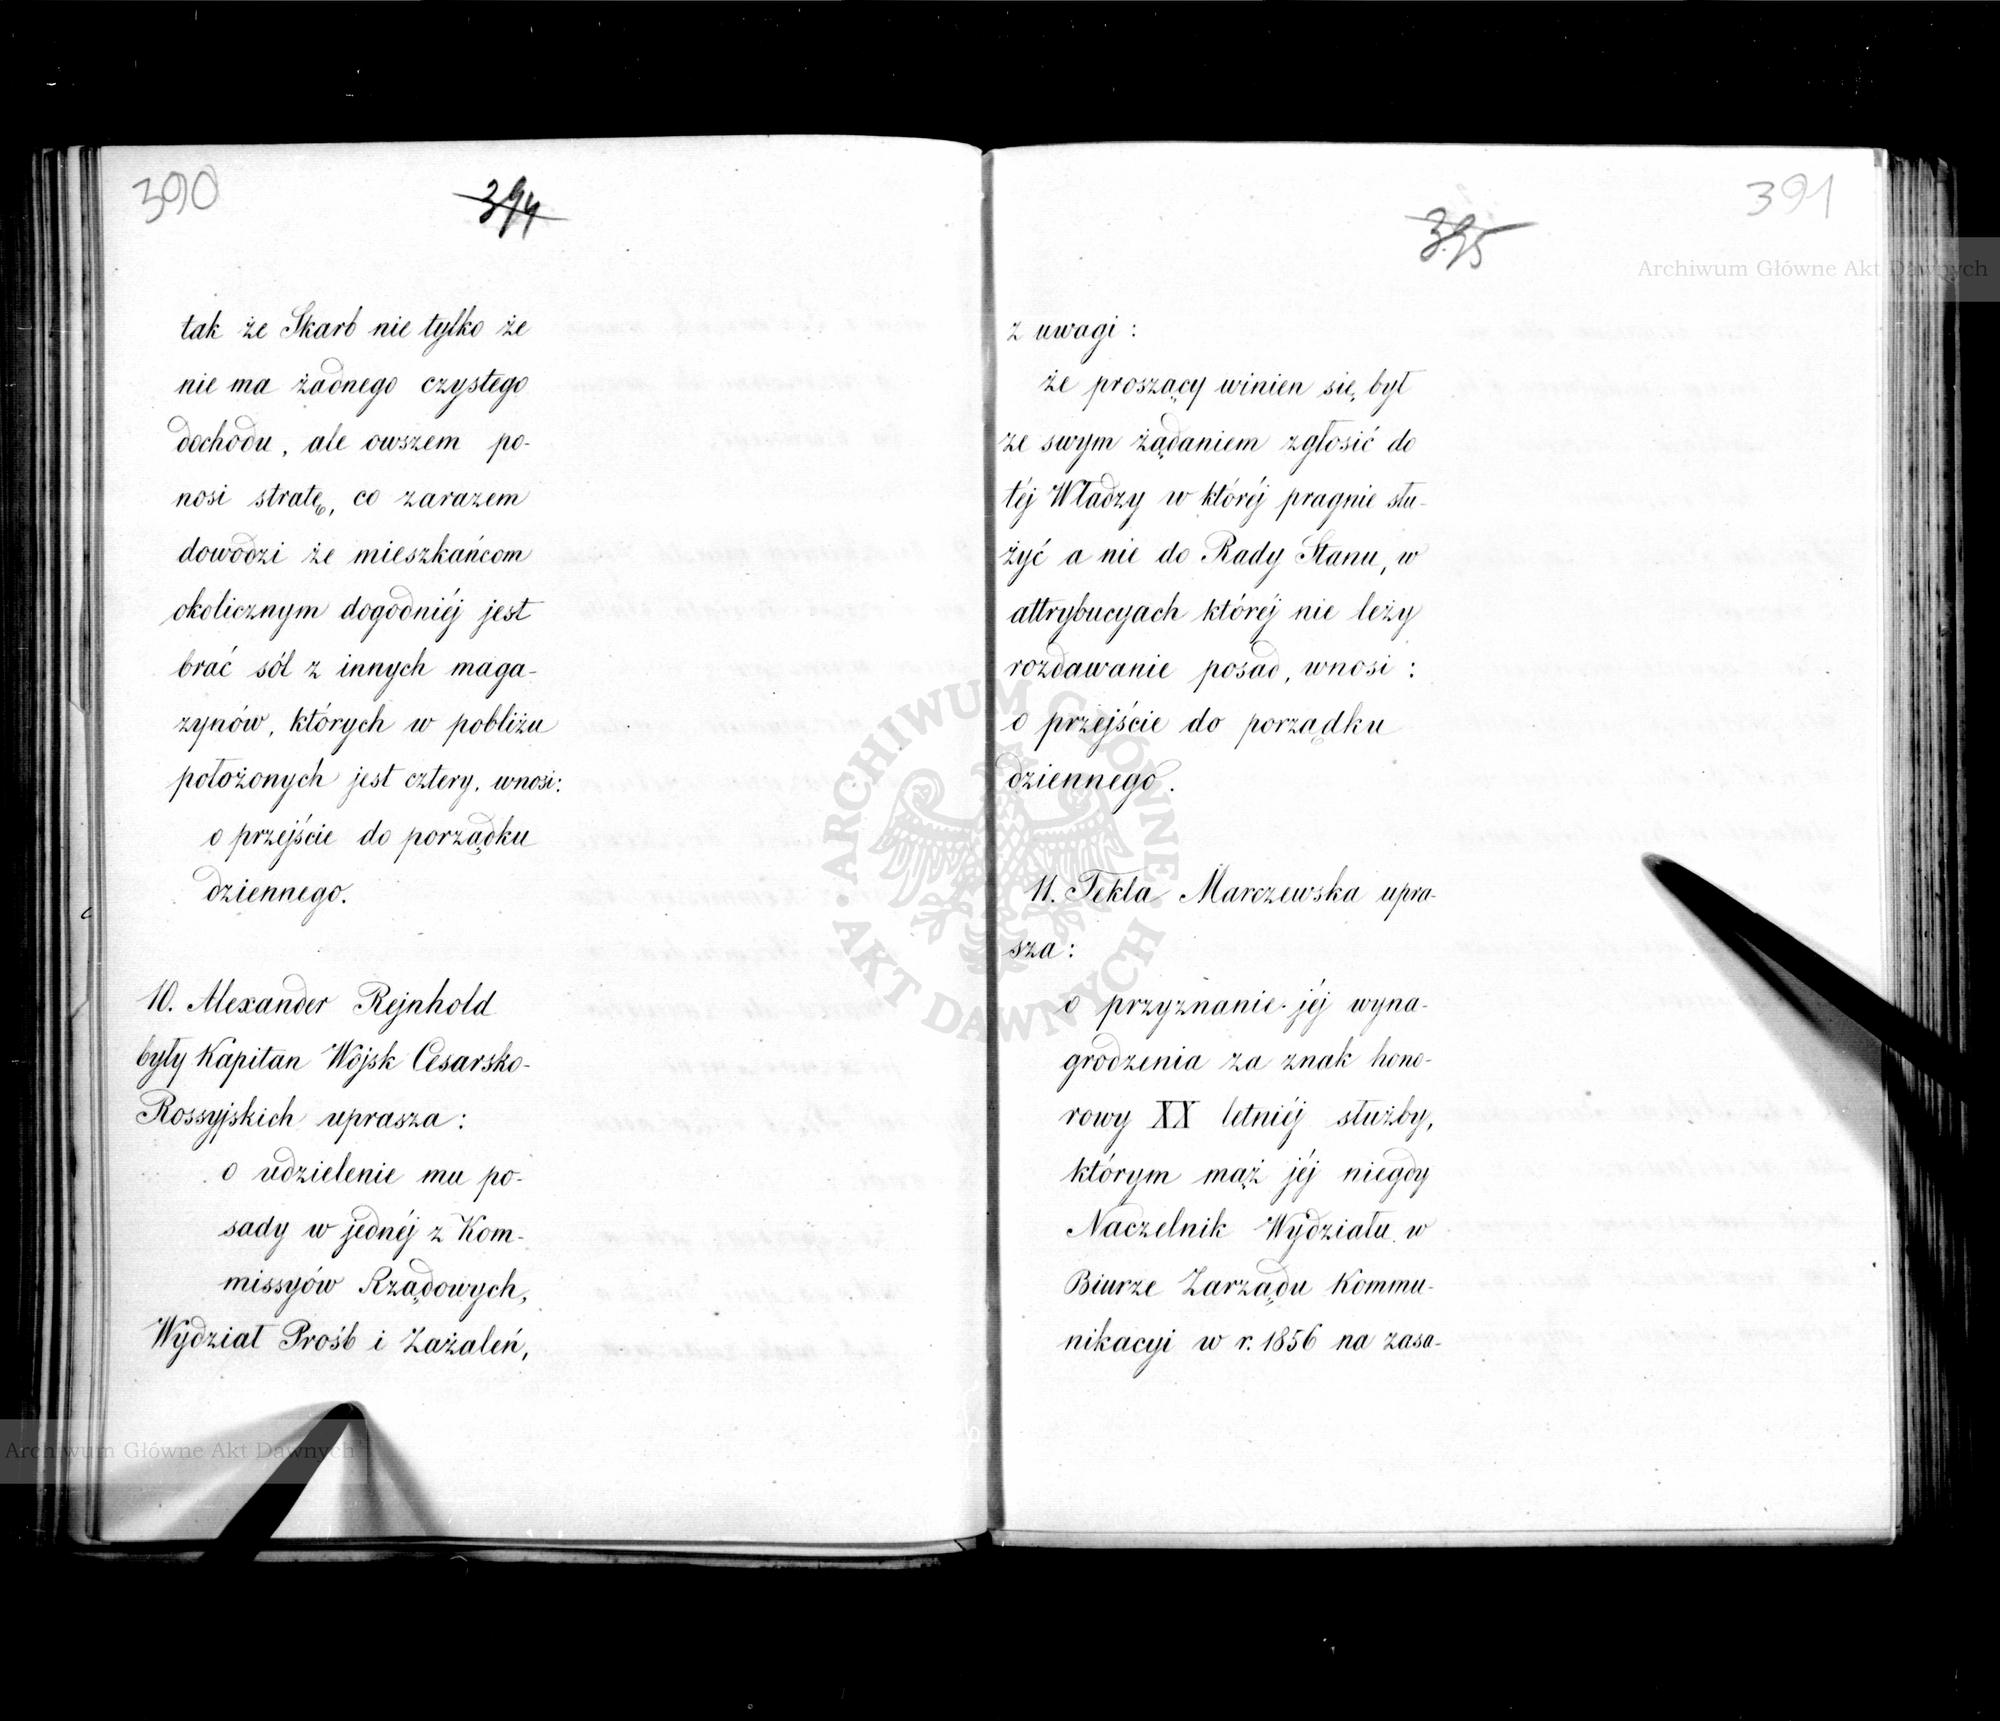 390
394
tak że Skarb nie tylko że
nie ma żadnego czystego
dochodu, ale owszem po-
nosi stratę, co zarazem
dowodzi że mieszkańcom
okolicznym dogodniéj jest
brać sól z innych maga-
zynów, których w pobliżu
położonych jest cztery, wnosi:
o przejście do porządku
dziennego.
10. Alexander Rejnhold
były Kapitan Wojsk Cesarsko-
Rossyjskich uprasza:
o udzielenie mu po-
sady w jednéj z Kom-
missyów Rządowych,
Wydział Prośb i Zażaleń,
Archiwum Główne Akt Dawnych
391
395
Archiwum Główne Akt Dawnych
z uwagi:
że proszący winien się był
ze swym żądaniem zgłosić do
téj Władzy w któréj pragnie słu-
żyć a nie do Rady Stanu, w
attrybucyach któréj nie leży
rozdawanie posad, wnosi:
o przejście do porządku
dziennego.
11. Tekla Marczewska upra-
sza:
o przyznanie jéj wyna-
grodzenia za znak hono-
rowy XX letniéj służby,
którym mąż jéj niegdy
Naczelnik Wydziału w
Biurze Zarządu Kommu-
nikacyi w r. 1856 na zasa-
ARCHIWUM GŁÓWNE AKT DAWNYCH